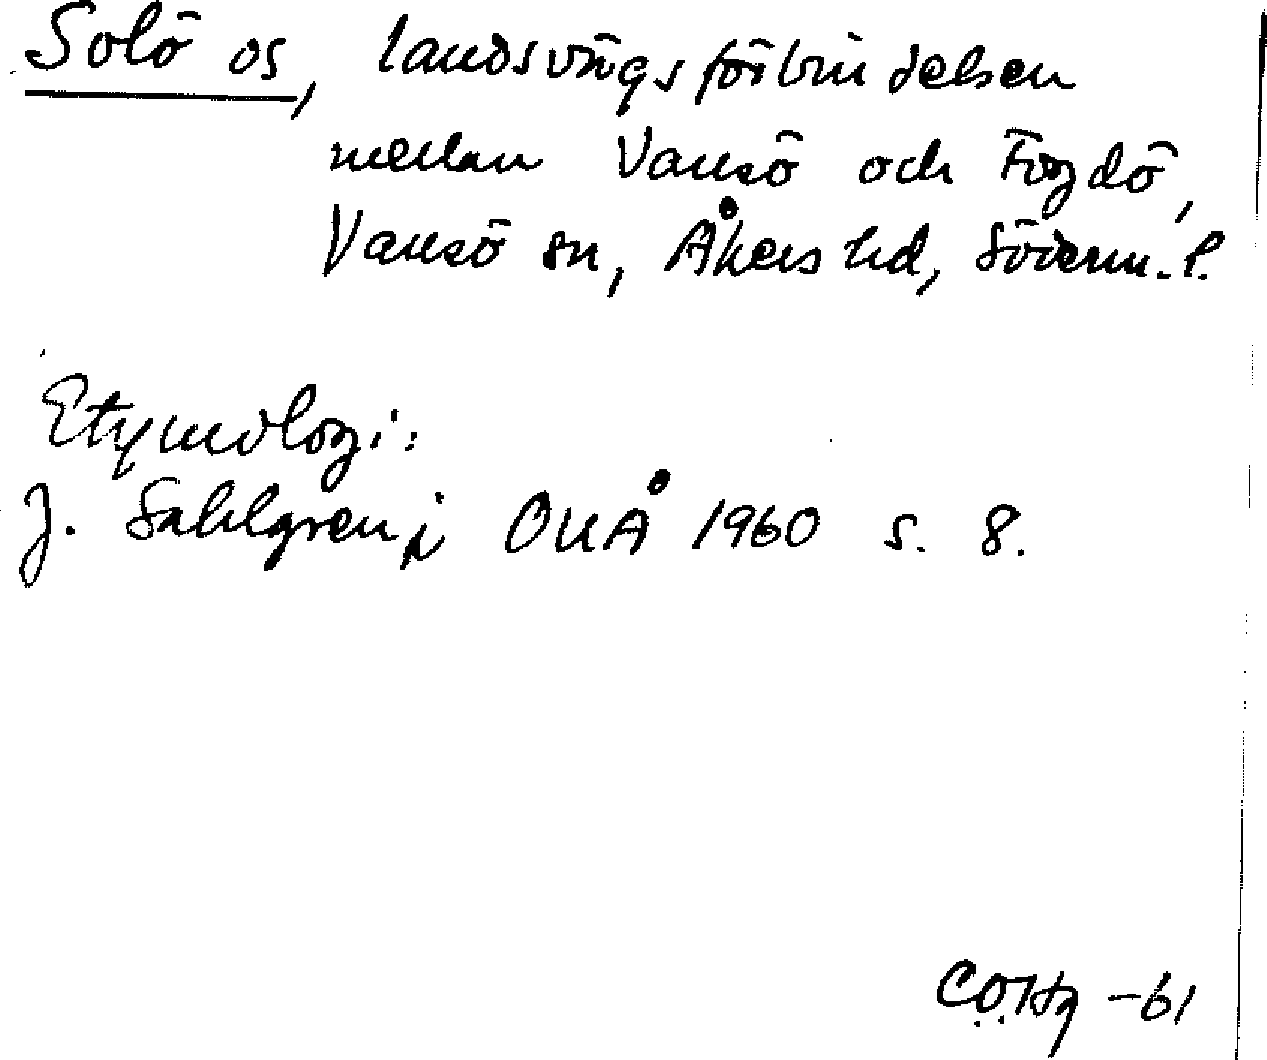 Solö os, landsvägsförbindelsen
mellan Vansö och Fogdö,
Vansö sn, Åkers hd, Söderm. l.
Etymologi:
J. Sahlgren i OUÅ 1960 s. 8.
CÖHg -61